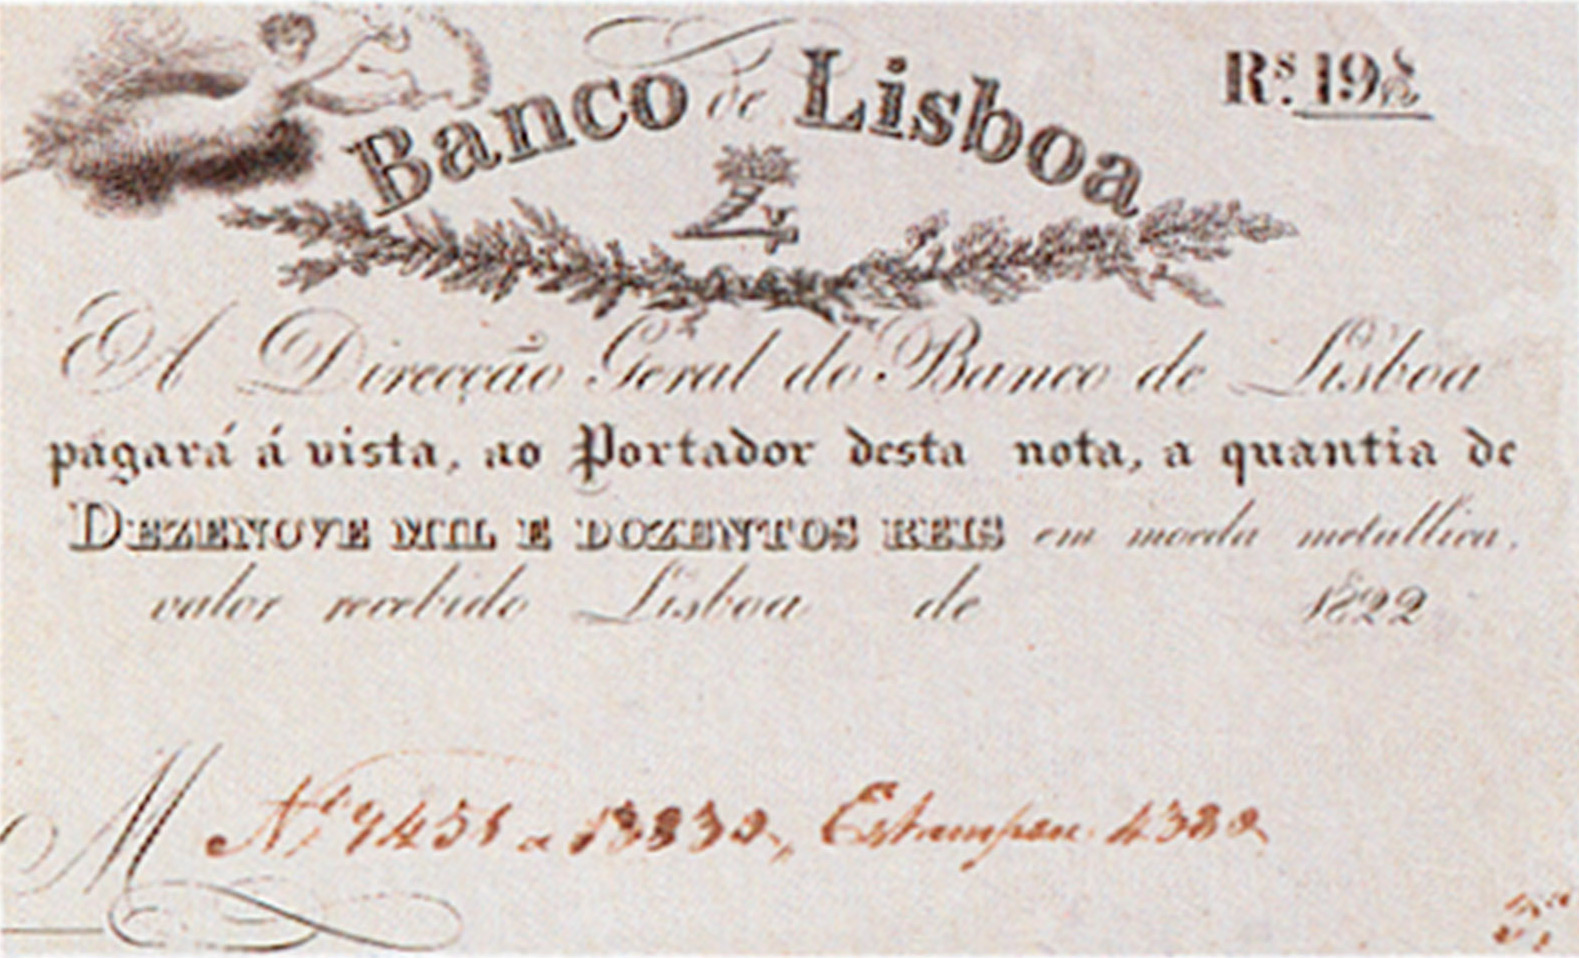 Banco de Lisboa
Rˢ. 19
A Direcção Geral do Banco de Lisboa
pagará á vista, ao Portador desta nota, a quantia de
DEZENOVE MIL E DOZENTOS REIS em moeda metallica,
valor recebido Lisboa de 1822
Estampou 4380